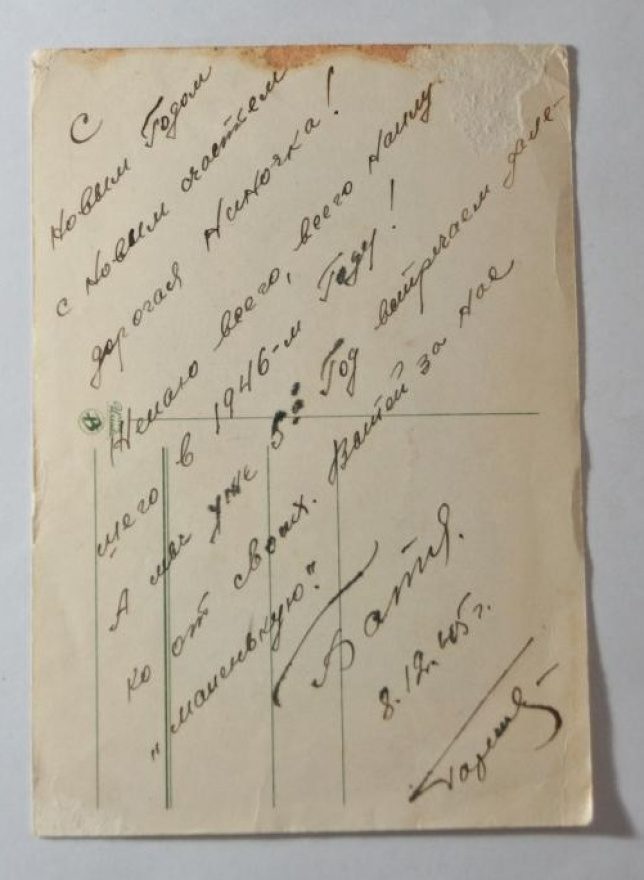 С
Новым Годом
с Новым счастьем
дорогая Ниночка!
Желаю всего, всего Наилу-
щего в 1946-м Году!
А мы уже 5й Год встречаем дале-
ко от своих. Выпей за нас
"маленькую".
Батя.
8.12.45 г.